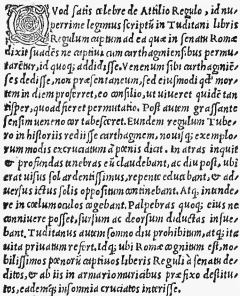 QVod satis cælebre de Attilio Regulo, id nu
perrime legimus scriptũ in Tuditani libris
Regulum captum ad ea quæ in senatu Romæ
dixit suadẽs ne captiui cum carthaginẽsibus permu
tarẽtur, id quoq; addidisse. Venenum sibi carthagiñẽ
ses dedisse, non præsentaneum, sed eiusmodi qđ mor
tem in diem proferret, eo consilio, ut uiueret quidẽ tan
tisper, quoad fieret permutatio. Post autem grassante
sensim ueneno cõtabesceret. Eundem regulum Tube
ro in historiis rediisse carthaginem, nouisq; exemplo
rum modis excruciatum a pœnis dicit. In atras inquit
et profundas tenebras eũ claudebant, ac diu post, ubi
erat uisus sol ardentissimus, repente educebant, et ad
uersus ictus solis oppositum continebant. Atq; intende
re in cœlum oculos cogebant. Palpebras quoq; eius ne
conniuere posset, sursum ac deorsum diductas insue
bant. Tuditanus autem somno diu prohibitum, atq; ita
uita priuatum refert. Idq; ubi Romæ cognitum est, no
bilissimos pœnorũ captiuos liberis Reguli à senatu de
ditos, et ab iis in armario muricibus præfixo destitu
tos, eademq; insomnia cruciatos interisse.